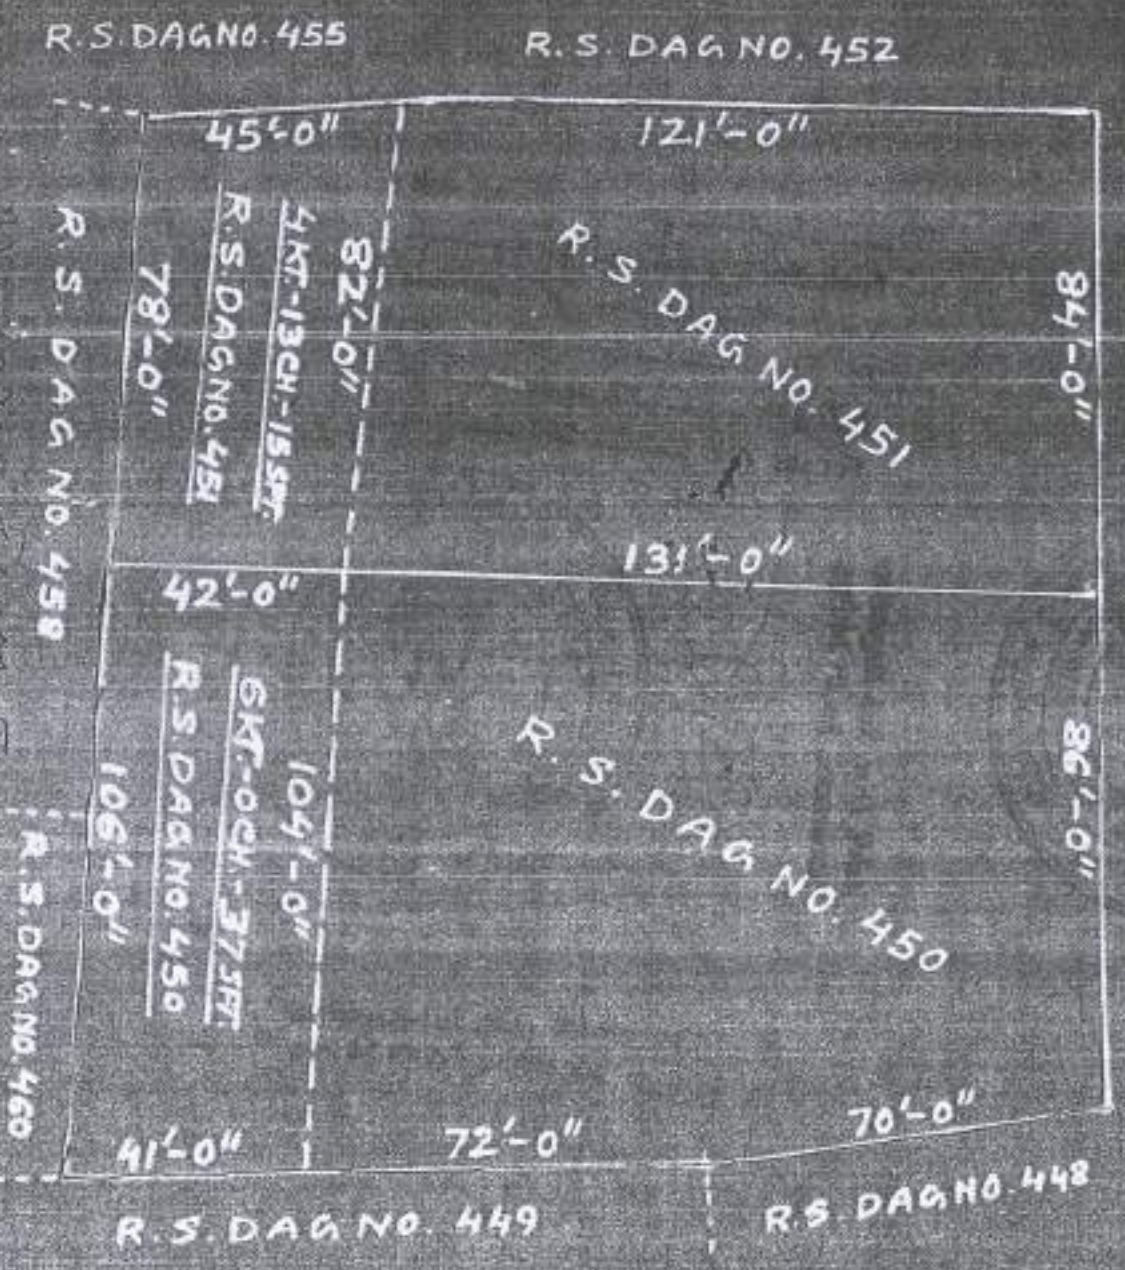 R.S.DAG NO. 455
R.S. DAG NO. 452
45'-0"
121'-0"
R.S. DAG NO. 458
78'-0"
R.S. DAG NO. 451
4KT.-13CH.-15SFT.
82'-0"
R.S. DAG NO. 451
84'-0"
42'-0"
131'-0"
106'-0"
R.S DAG NO. 450
6KT.-0CH.-37SFT.
104'-0"
R.S. DAG NO. 450
86'-0"
R.S. DAG NO. 460
41'-0"
72'-0"
70'-0"
R.S. DAG NO. 449
R.S. DAG NO. 448